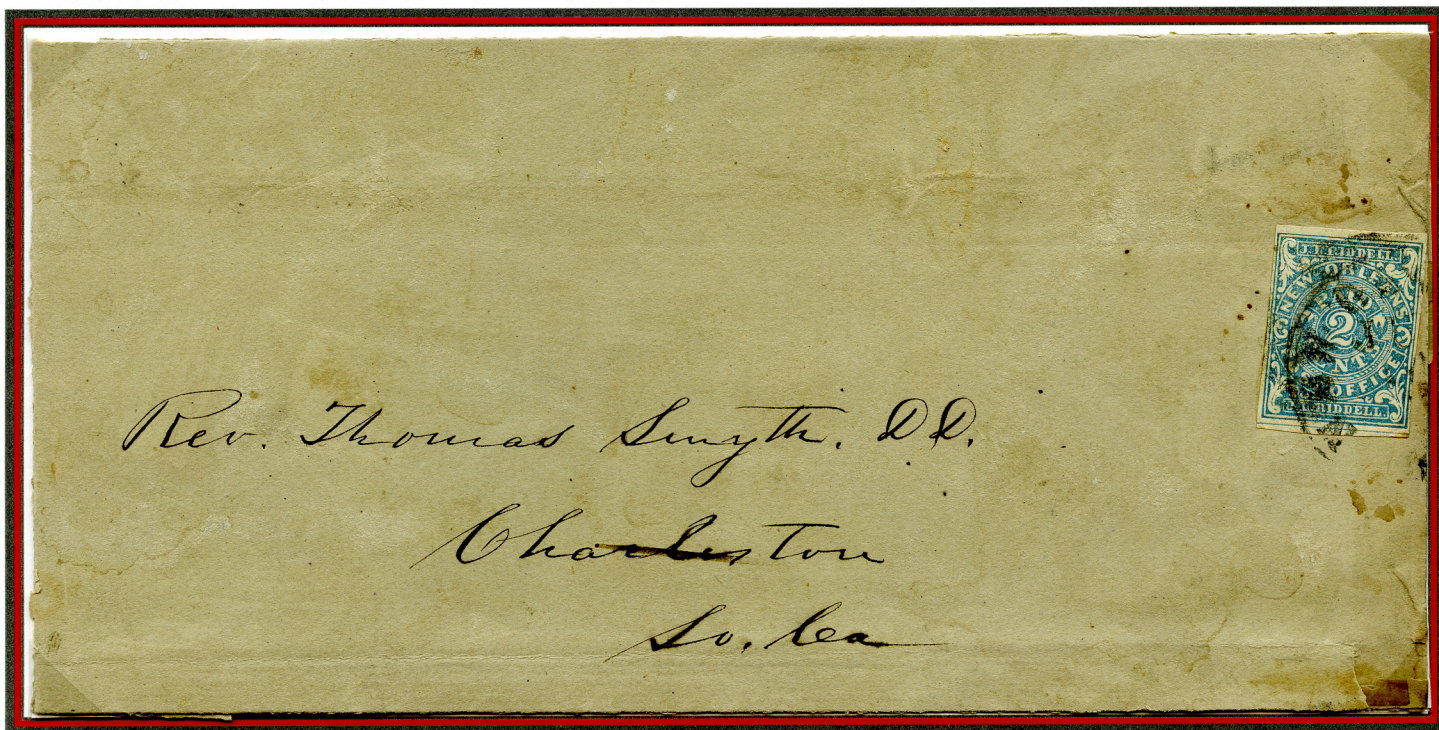 J.L. RIDDELL.
NEW ORLEANS
PAID
2
CENTS
POST OFFICE
J.L. RIDDELL.
Rev. Thomas Smyth. DD.
Charleston
So. Ca